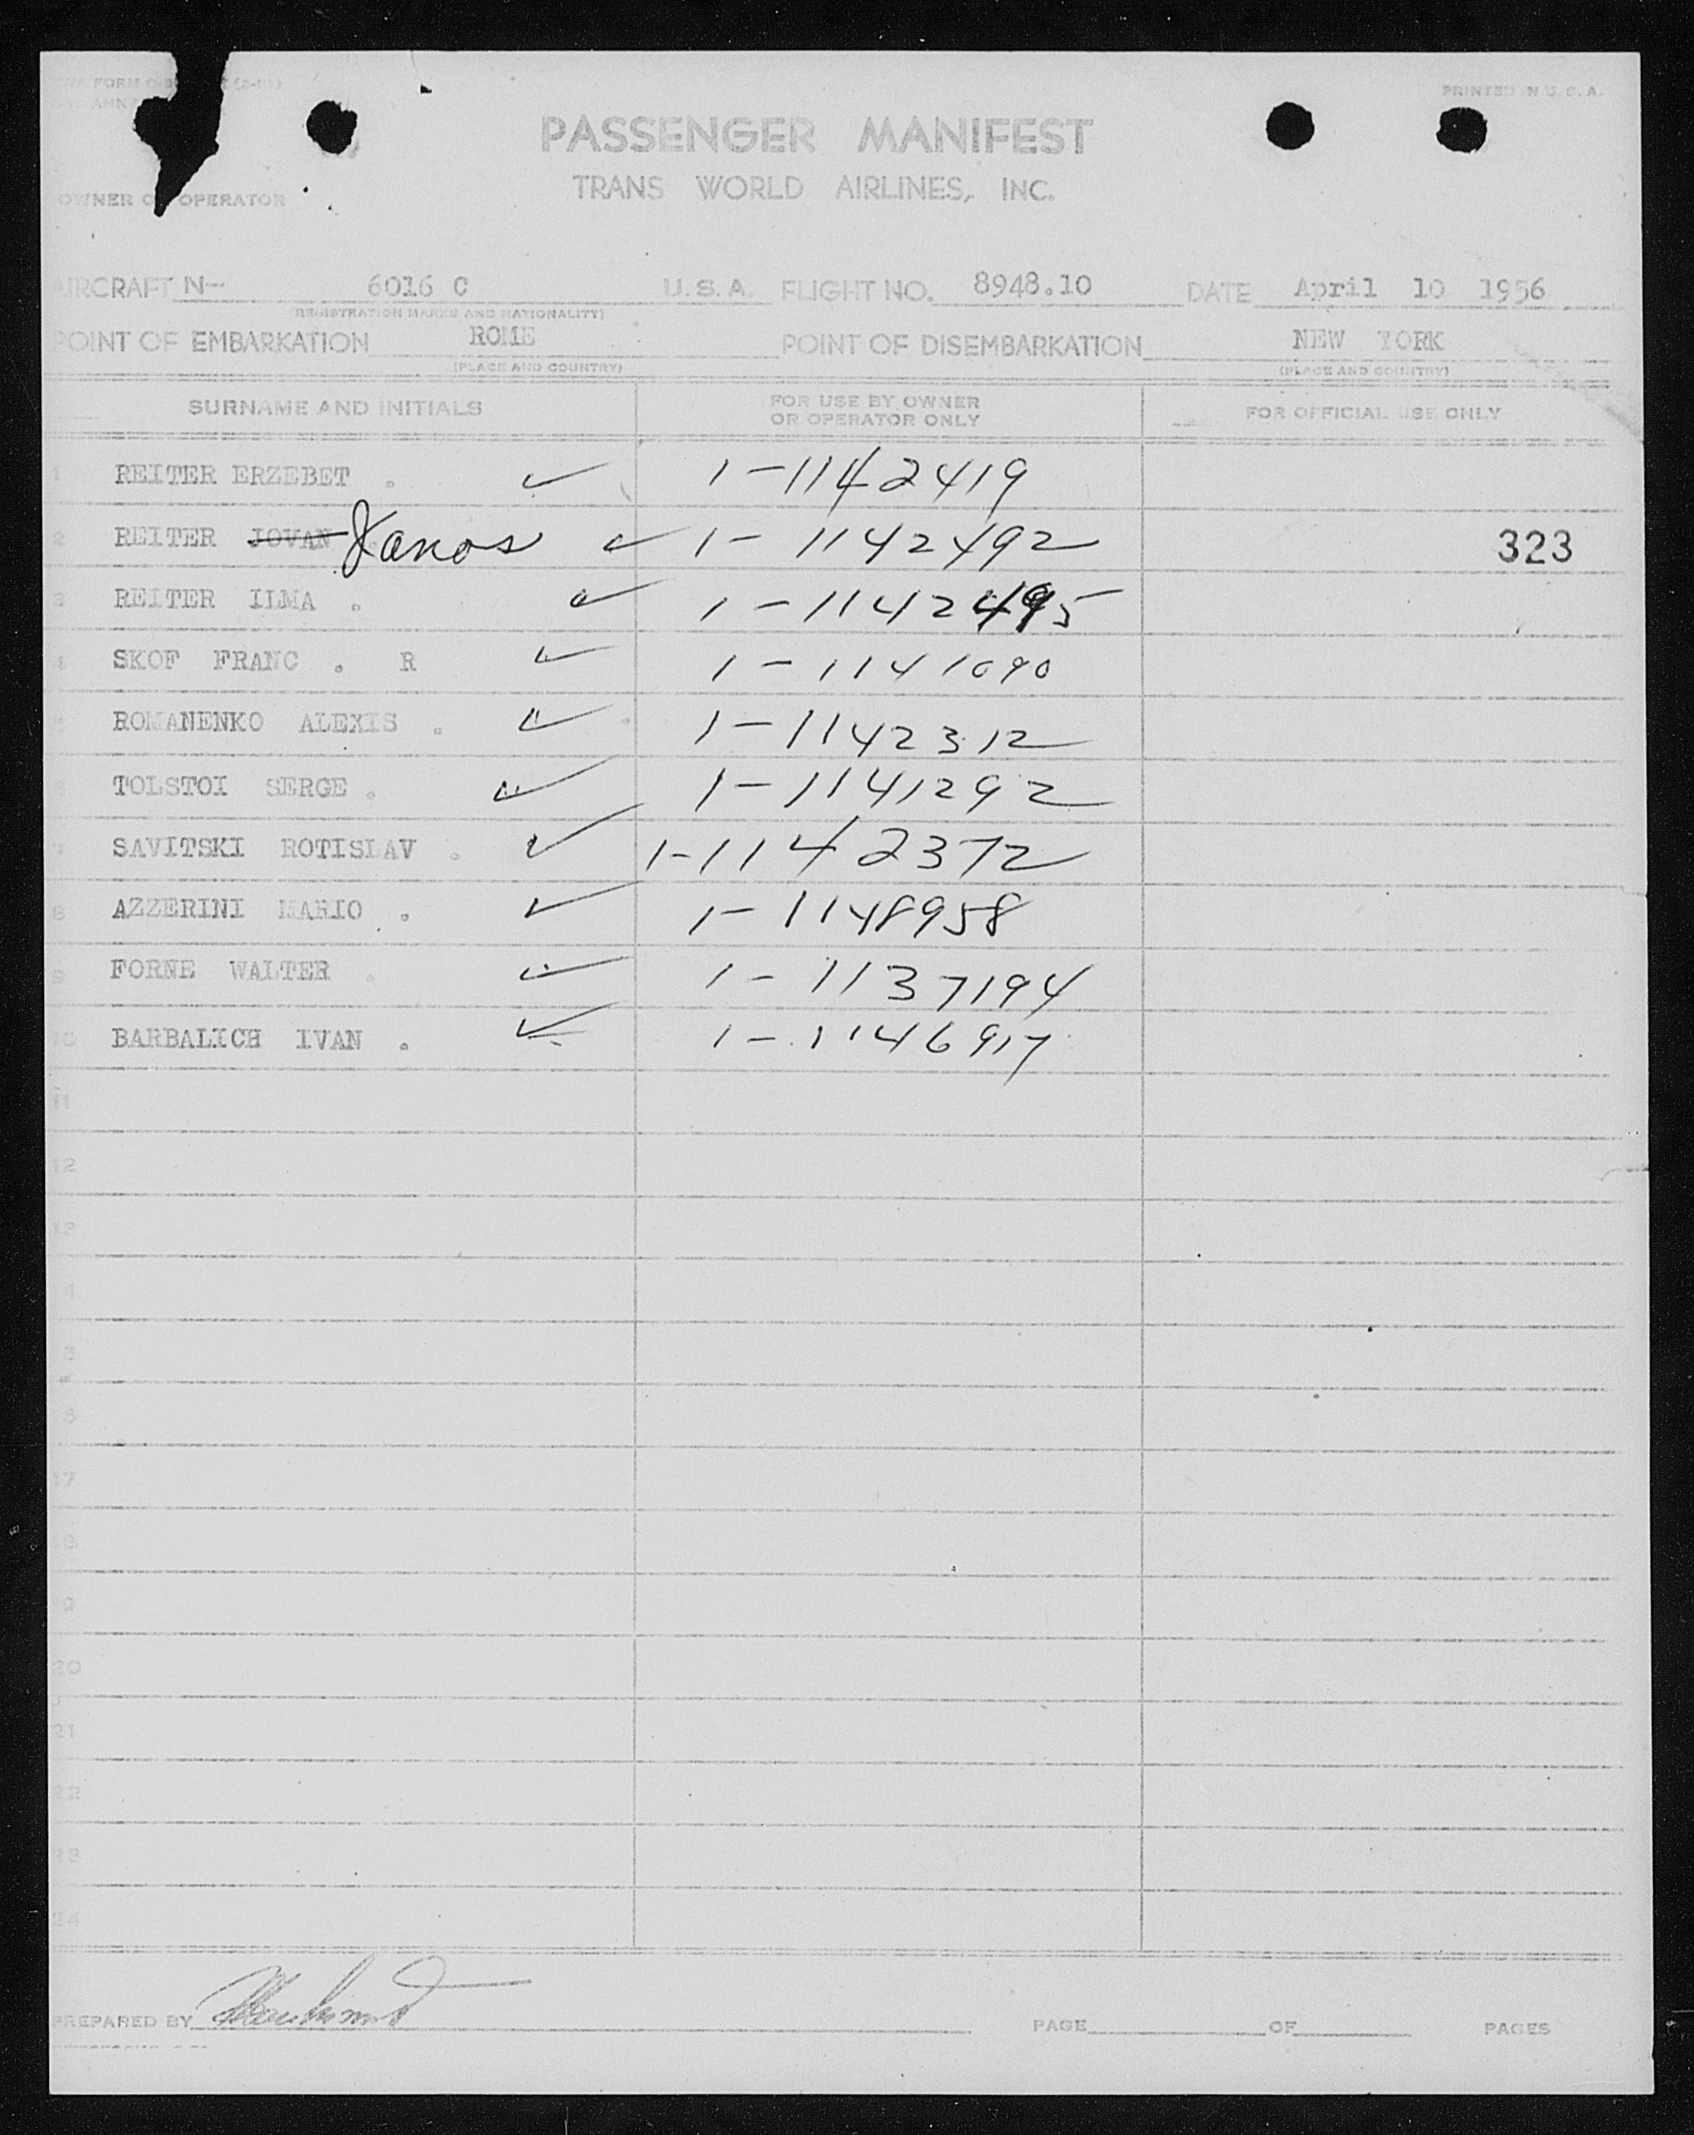 PRINTED IN U.S.A.
PASSENGER MANIFEST
TRANS WORLD AIRLINES, INC.
OWNER OR OPERATOR
AIRCRAFT N- 6016 C U.S.A. FLIGHT NO. 8948.10 DATE April 10 1956
(REGISTRATION MARKS AND NATIONALITY)
POINT OF EMBARKATION ROME POINT OF DISEMBARKATION NEW YORK
(PLACE AND COUNTRY) (PLACE AND COUNTRY)
SURNAME AND INITIALS FOR USE BY OWNER OR OPERATOR ONLY FOR OFFICIAL USE ONLY
1 REITER ERZEBET . ✓ 1-1142419
2 REITER JOVAN Janos ✓ 1-1142492 323
3 REITER ILMA . ✓ 1-1142495
4 SKOF FRANC . R ✓ 1-1141090
5 ROMANENKO ALEXIS . ✓ 1-1142312
6 TOLSTOI SERGE . ✓ 1-1141292
7 SAVITSKI ROTISLAV . ✓ 1-1142372
8 AZZERINI MARIO . ✓ 1-1148958
9 FORNE WALTER . ✓ 1-1137194
10 BARBALICH IVAN . ✓ 1-1146917
11
12
13
14
15
16
17
18
19
20
21
22
23
24
PREPARED BY PAGE OF PAGES